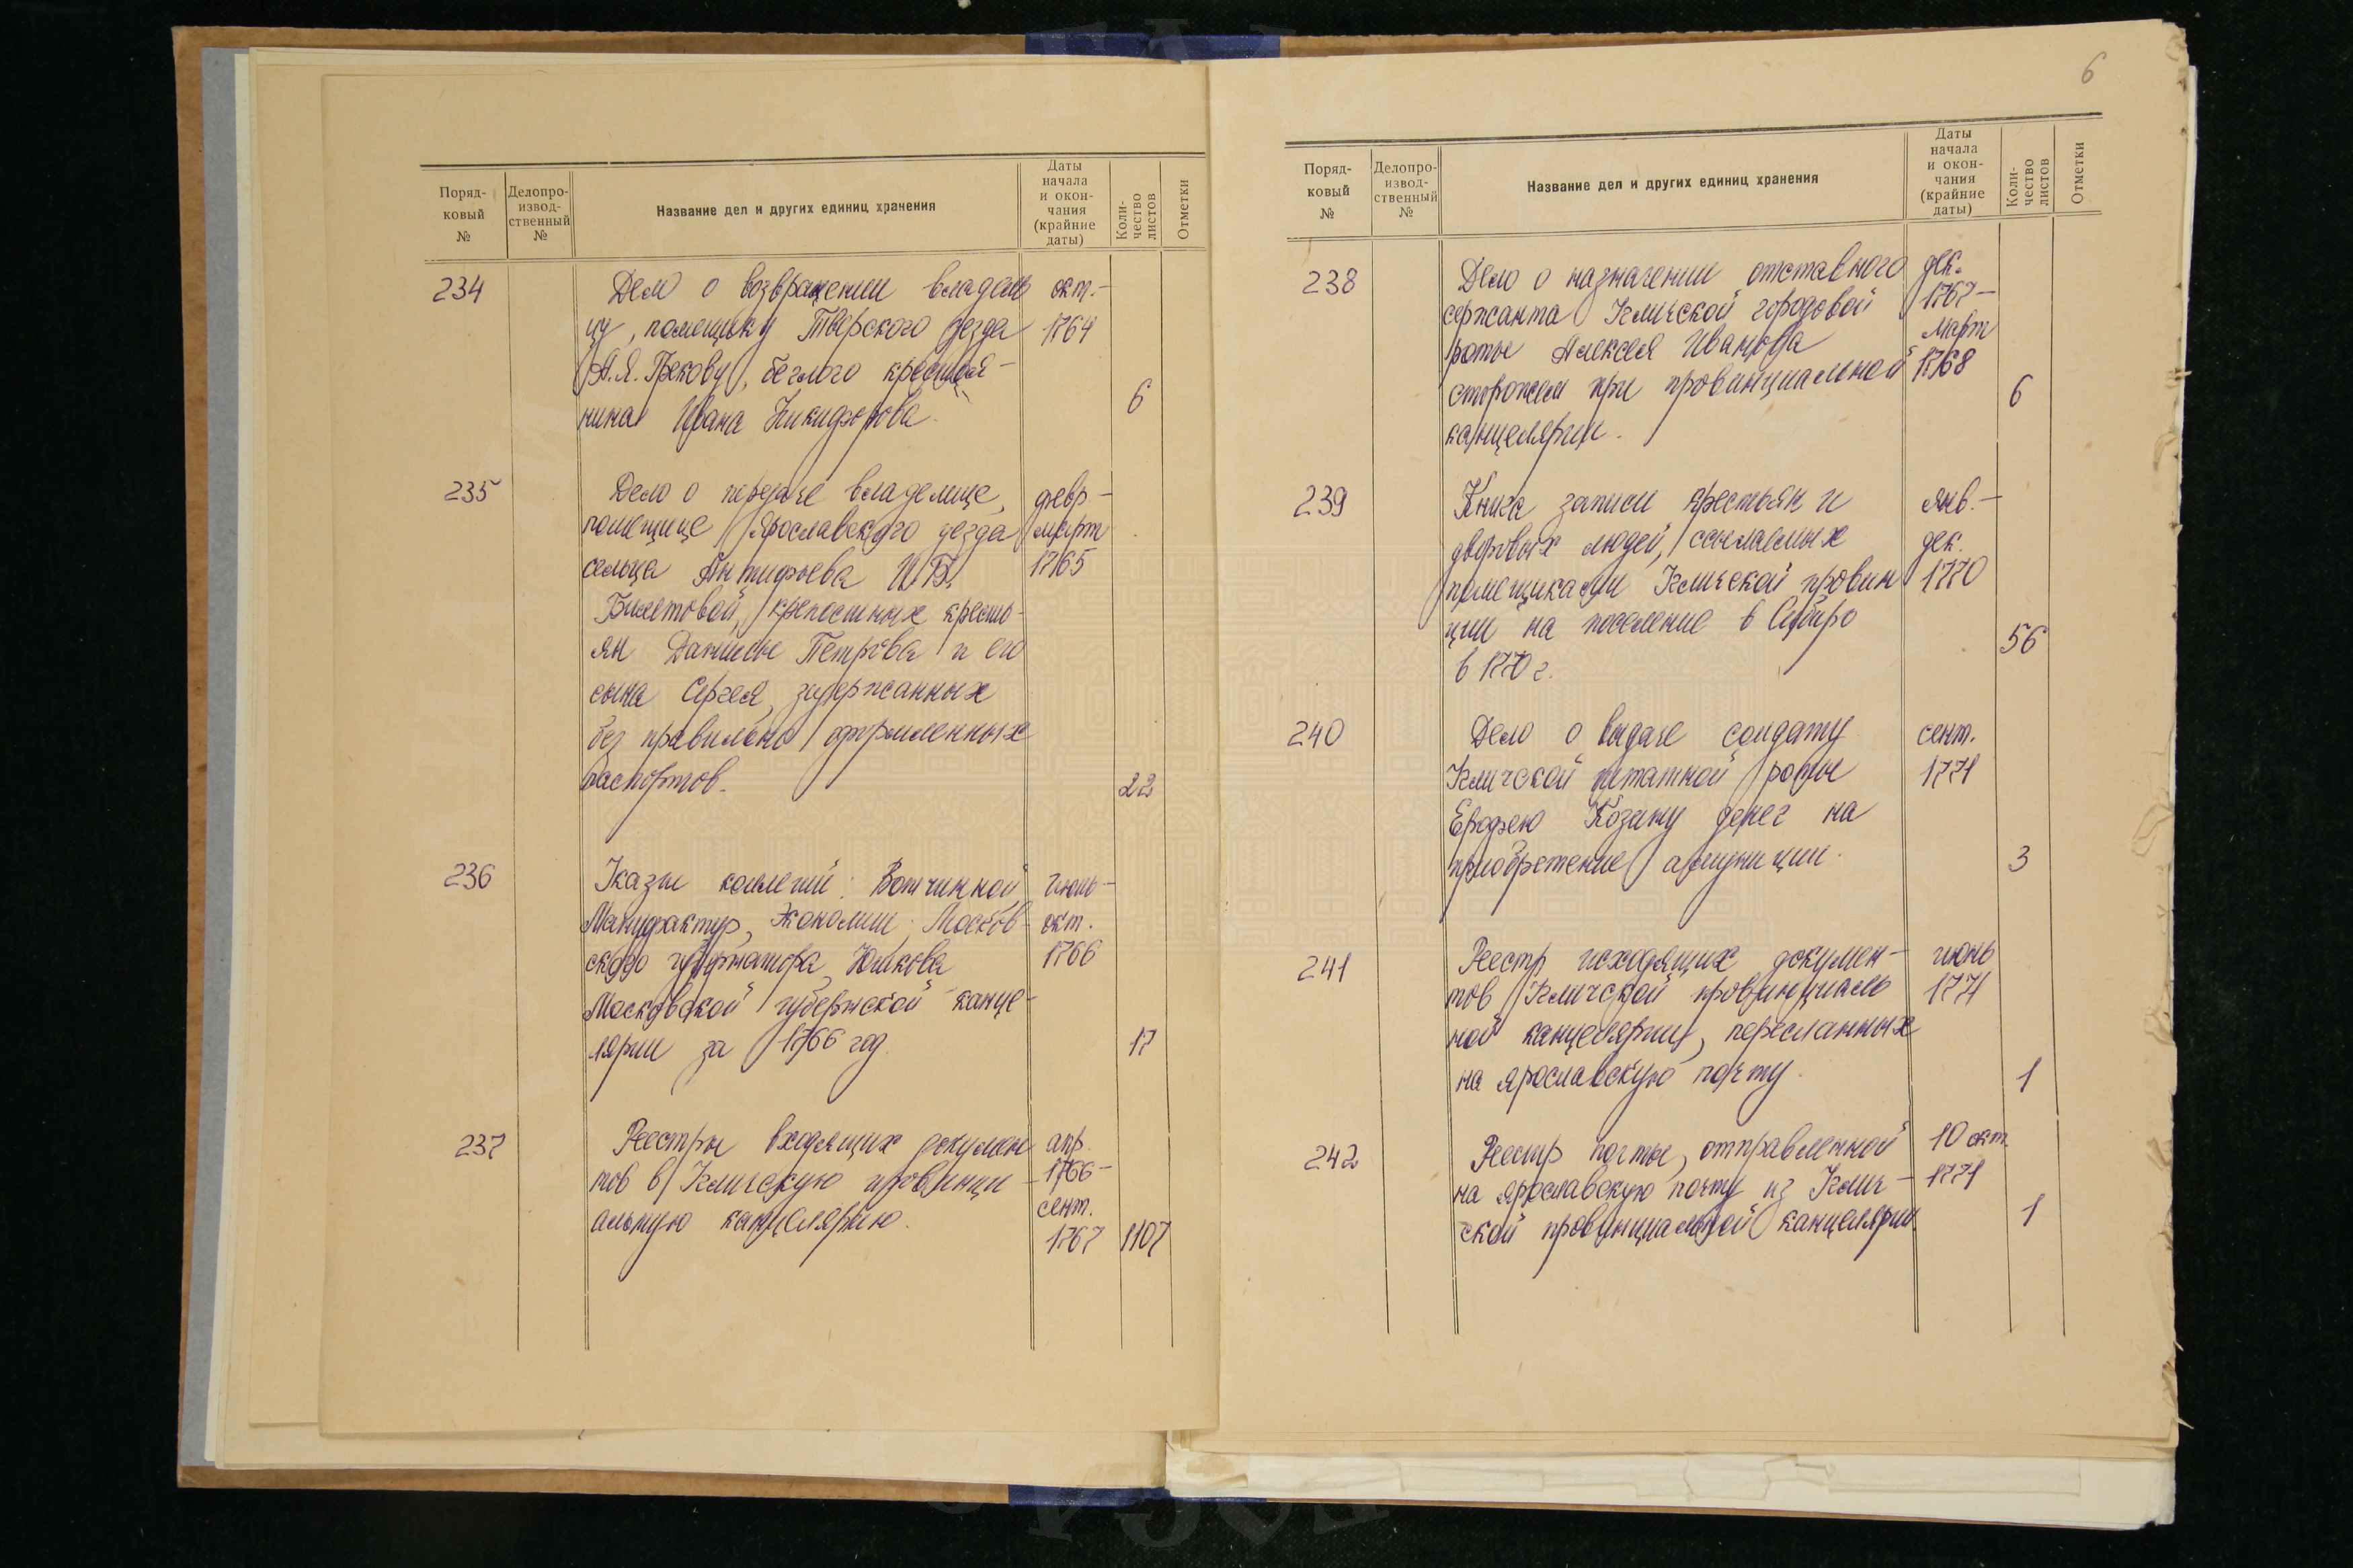 Поряд-
ковый
№
Делопро-
извод-
ственный
№
Название дел и других единиц хранения
Даты
начала
и окон-
чания
(крайние
даты)
Коли-
чество
листов
Отметки
234
Дело о возвращении владель
цу, помещику Тверского уезда
А.Я. Грекову, беглого крестья-
нина Ивана Никифорова.
окт.-
1764
6
235
Дело о передаче владелице,
помещице Ярославского уезда
сельца Антифьева И.В.
крепостных кресть-
ян Данилы Петрова и его
сына Сергея, задержанных
без правильно оформленных
паспортов.
февр-
март
1765
22
236
Указы коллегий: Вотчинной
Мануфактур, Экономии; Москов-
ского губернатора Юшкова
Московской губернской канце-
лярии за 1766 год.
июль-
окт.
1766
17
237
Реестры входящих докумен
тов в Угличскую провинци-
альную канцелярию.
апр.
1766-
сент.
1767
1107
6
Поряд-
ковый
№
Делопро-
извод-
ственный
№
Название дел и других единиц хранения
Даты
начала
и окон-
чания
(крайние
даты)
Коли-
чество
листов
Отметки
238
Дело о назначении отставного
сержанта Угличской городовой
роты Алексея Иванова
сторожем при провинциальной
канцелярии.
дек.
1767-
март
1768
6
239
Книга записи крестьян и
дворовых людей, ссылаемых
помещиками Угличской провин
ции на поселение в Сибирь
в 1770 г.
янв.-
дек.
1770
56
240
Дело о выдаче солдату
Угличской штатной роты
Ерофею Козину денег на
приобретение амуниции.
сент.
1771
3
241
Реестр исходящих докумен-
тов Угличской провинциаль
ной канцелярии, пересланных
на ярославскую почту.
июнь
1771
1
242
Реестр почты, отправленной
на ярославскую почту из Углич-
ской провинциальной канцелярии
10 окт.
1771
1